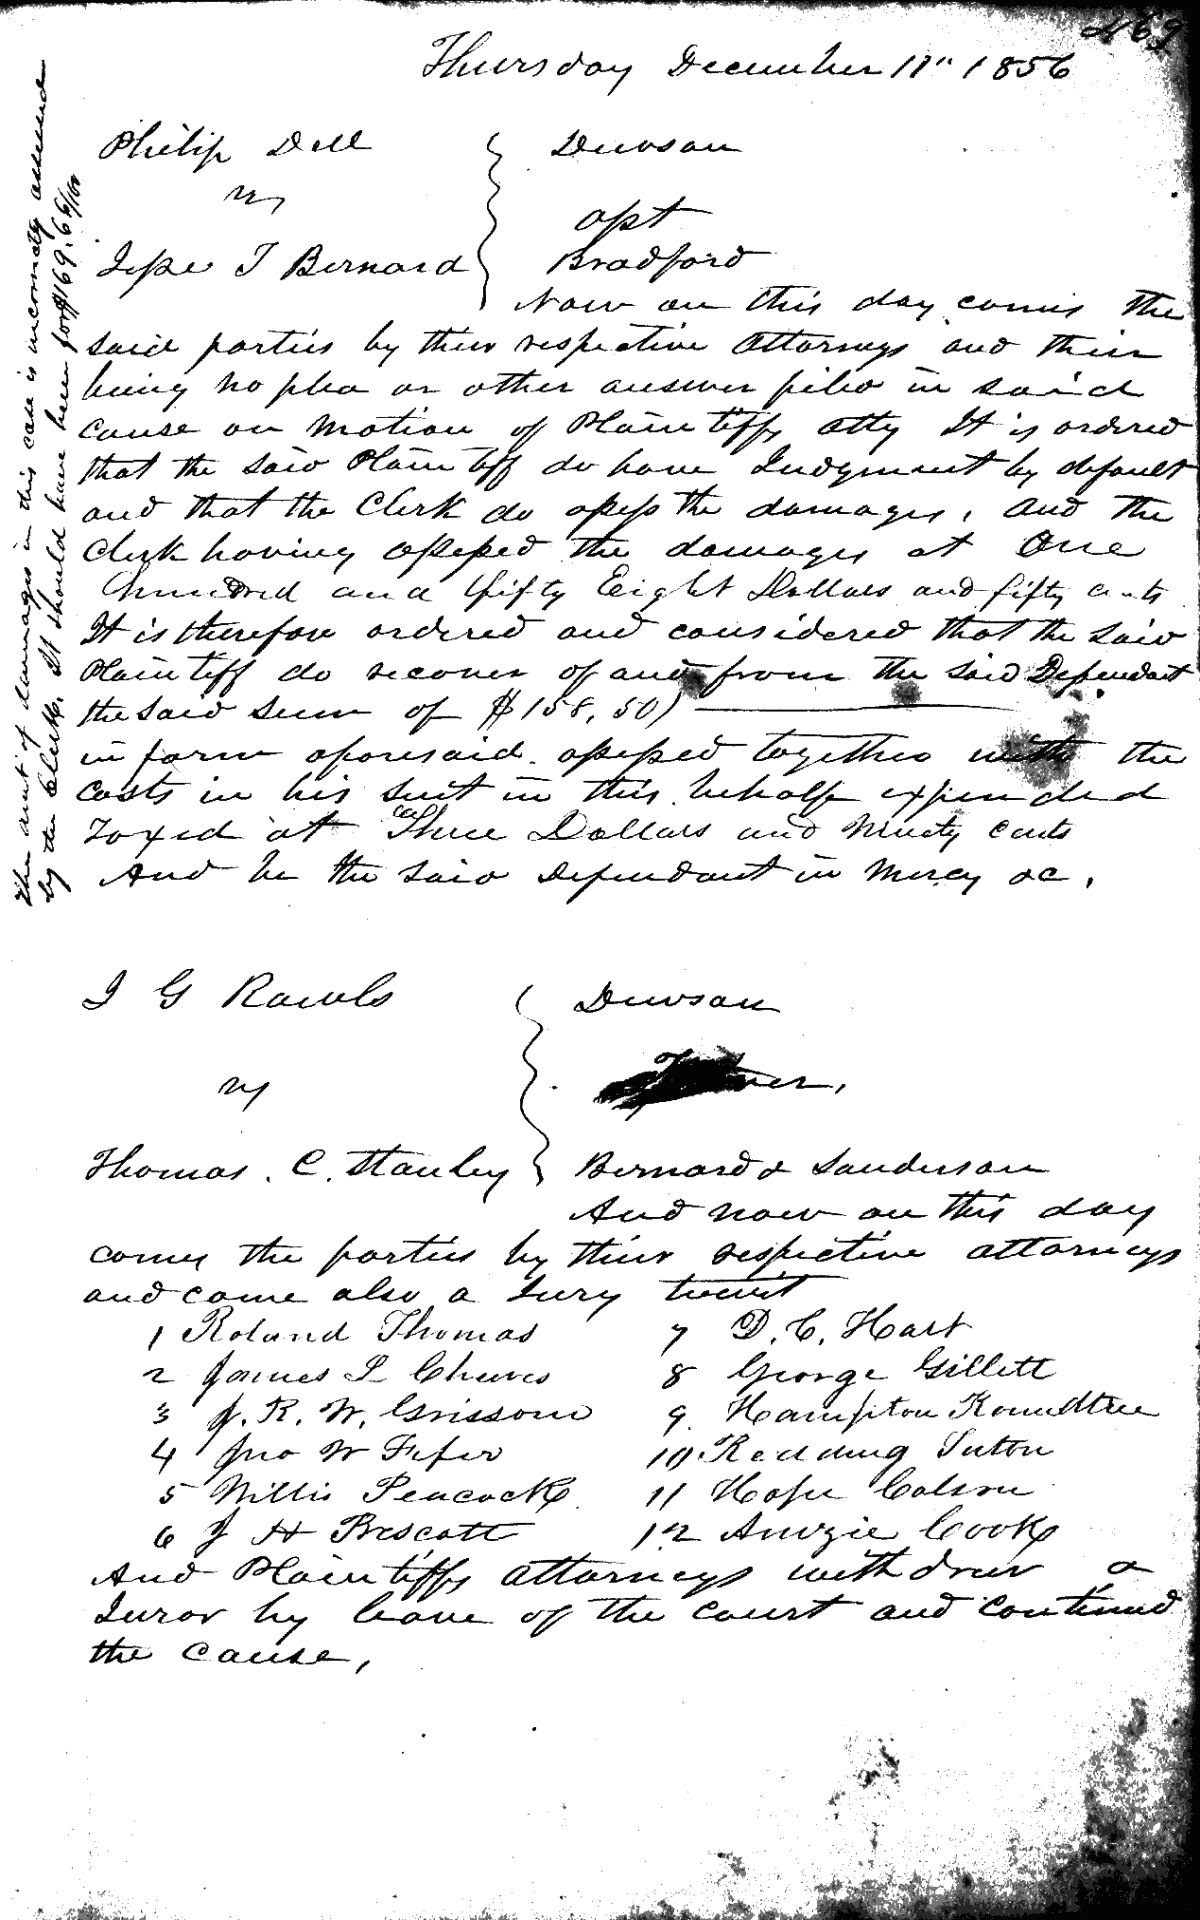 469
Thursday December 11" 1856
Philip Dell
vs
Jesse T Bernard
Dawson
asst
Bradford
Now on this day comes the
said parties by their respective attorneys and their
being no plea or other answer filed in said
cause on motion of Plaintiffs atty It is ordered
that the said Plaintiff do have Judgment by default
and that the Clerk do assess the damages, and the
Clerk having assessed the damages at One
hundred and fifty Eight Dollars and fifty cents
It is therefore ordered and considered that the said
Plaintiff do recover of and from the said Defendant
the said sum of $158,50)
in form aforesaid assessed together with the
costs in his suit in this behalf expended
Taxed at Three Dollars and Ninety cents
And be the said Defendant in Mercy &c.
The amt of damages in this case is incorrectly assessed
by the Clerk. It should have been for $169.66/100
J G Rawls
vs
Thomas. C. Stanley
Dawson
Bernard & Sanderson
And now on this day
comes the parties by their respective attorneys
and came also a Jury to wit
1 Roland Thomas
2 James L Cheeves
3 J. R. W. Grissom
4 Jno W Fifer
5 Willis Peacock
6 J H Prescott
7 D. C. Hart
8 George Gillett
9 Hampton Roundtree
10. Redding
11 Hope Colson
12 Cook
And Plaintiffs attorneys withdrew a
Juror by leave of the court and continued
the cause,